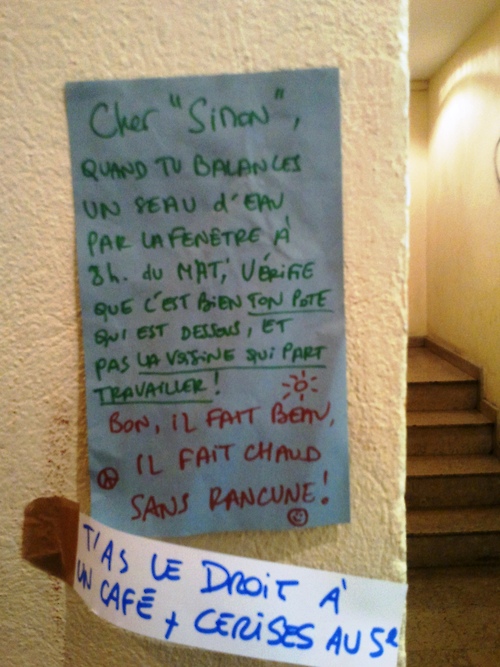 Cher "Simon",
QUAND TU BALANCES
UN SEAU d'EAU
PAR LA FENÊTRE À
8h. du MAT', VÉRIFIE
QUE C'EST BIEN TON POTE
QUI EST DESSOUS, ET
PAS LA VOISINE QUI PART
TRAVAILLER !
BON, IL FAIT BEAU,
IL FAIT CHAUD
SANS RANCUNE !
T'AS LE DROIT À
UN CAFÉ + CERISES AU 5e